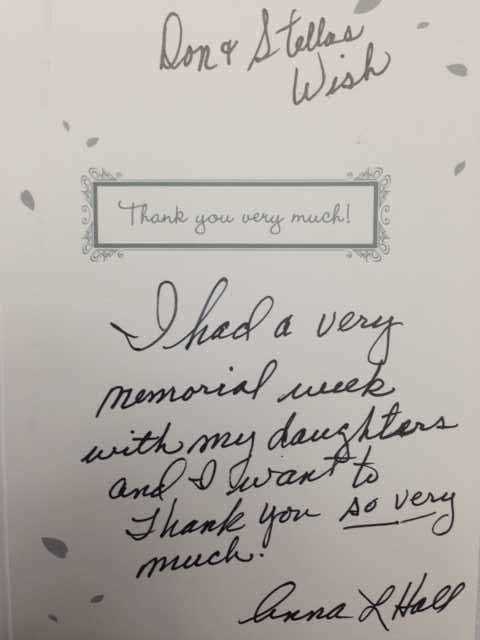 Don & Stellas
Wish
Thank you very much!
I had a very
memorial week
with my daughters
and I want to
Thank you so very
much.
Anna L Hall